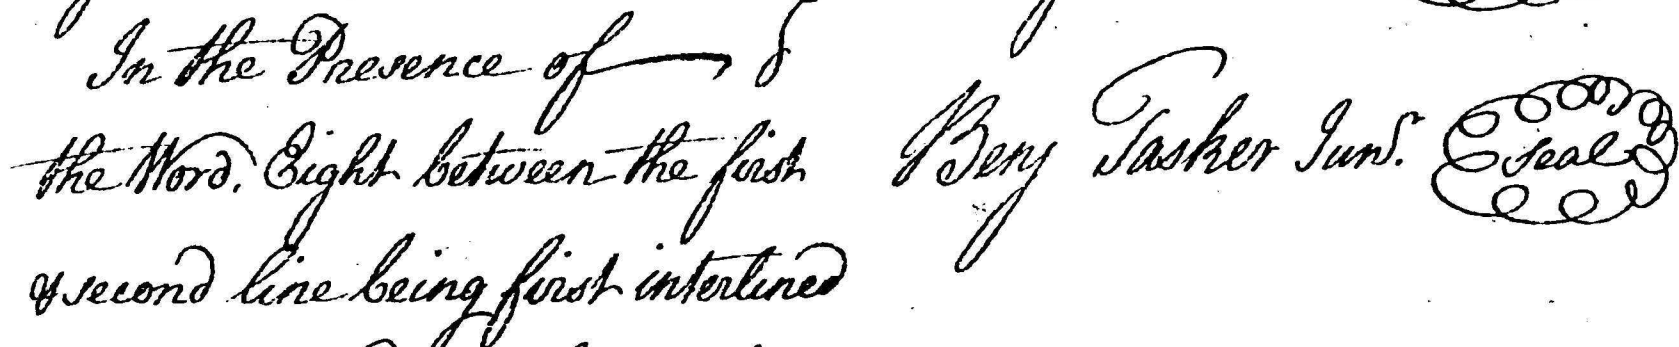 In the Presence of
the Word. Eight between the first
& second line being first interlined
Benj Tasker Junr. Seal